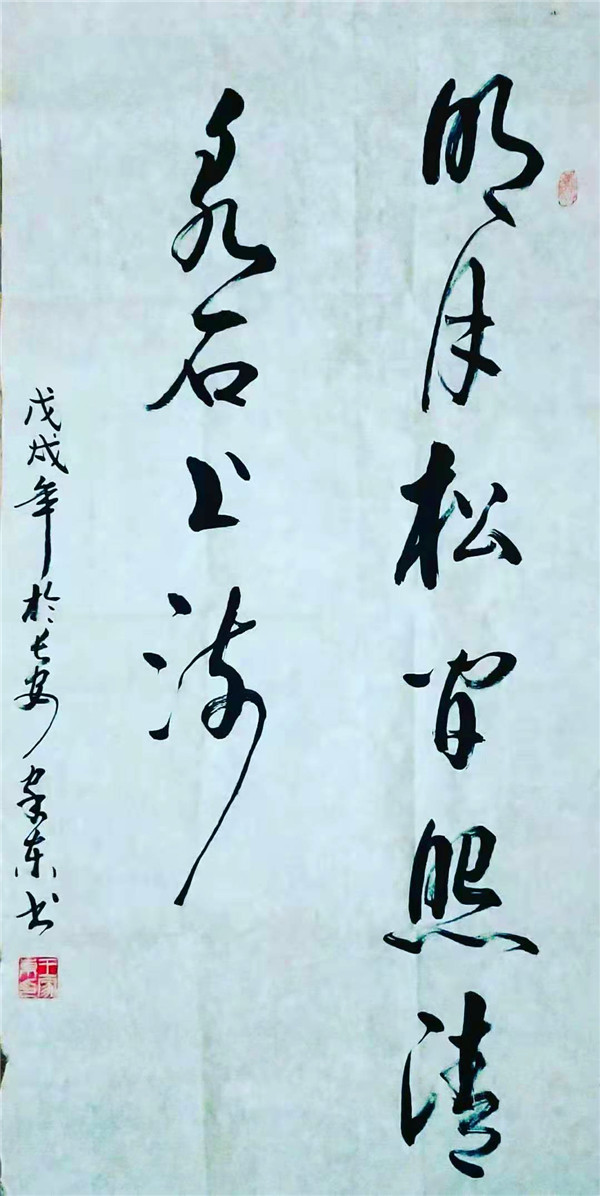 明月松间照清
泉石上流
戊戌年於长安家东书